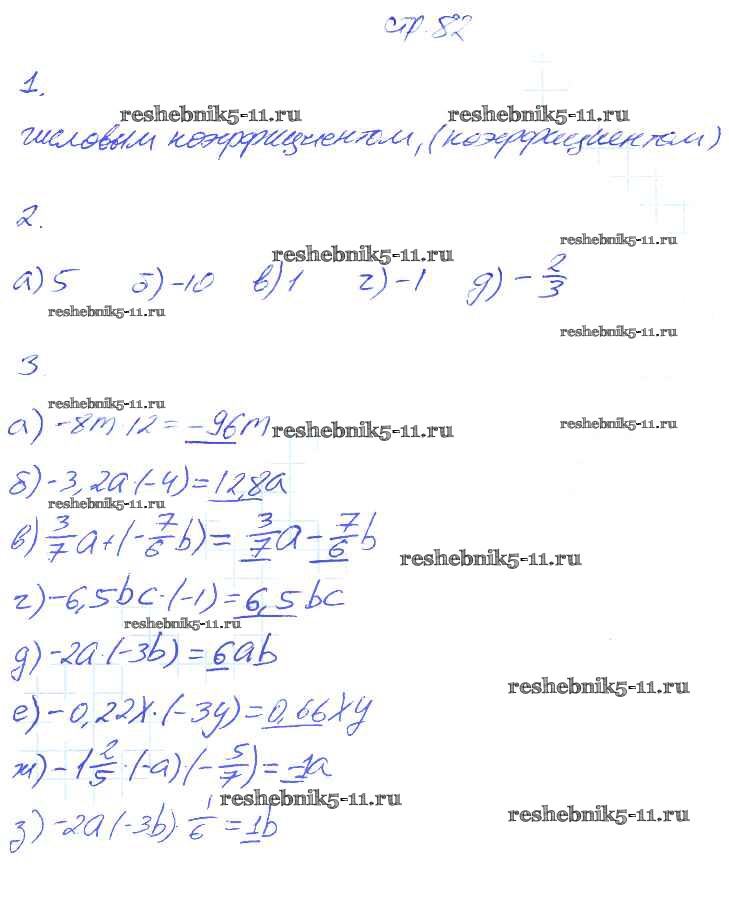 стр. 82
1.
reshebnik5-11.ru reshebnik5-11.ru
числовым коэффициентом, (коэффициентом)
2.
reshebnik5-11.ru reshebnik5-11.ru
а) 5 б) -10 в) 1 г) -1 д) - 2/3
reshebnik5-11.ru reshebnik5-11.ru
3.
reshebnik5-11.ru
а) -8m·12 = -96m reshebnik5-11.ru reshebnik5-11.ru
б) -3,2a·(-4) = 12,8a
reshebnik5-11.ru
в) 3/7 a + (- 7/6 b) = 3/7 a - 7/6 b reshebnik5-11.ru
г) -6,5bc·(-1) = 6,5bc
reshebnik5-11.ru
д) -2a·(-3b) = 6ab
reshebnik5-11.ru
е) -0,22x·(-3y) = 0,66xy
ж) -1 2/5·(-a)·(- 5/7) = -1a
reshebnik5-11.ru reshebnik5-11.ru
з) -2a·(-3b)· 1/6 = 1b